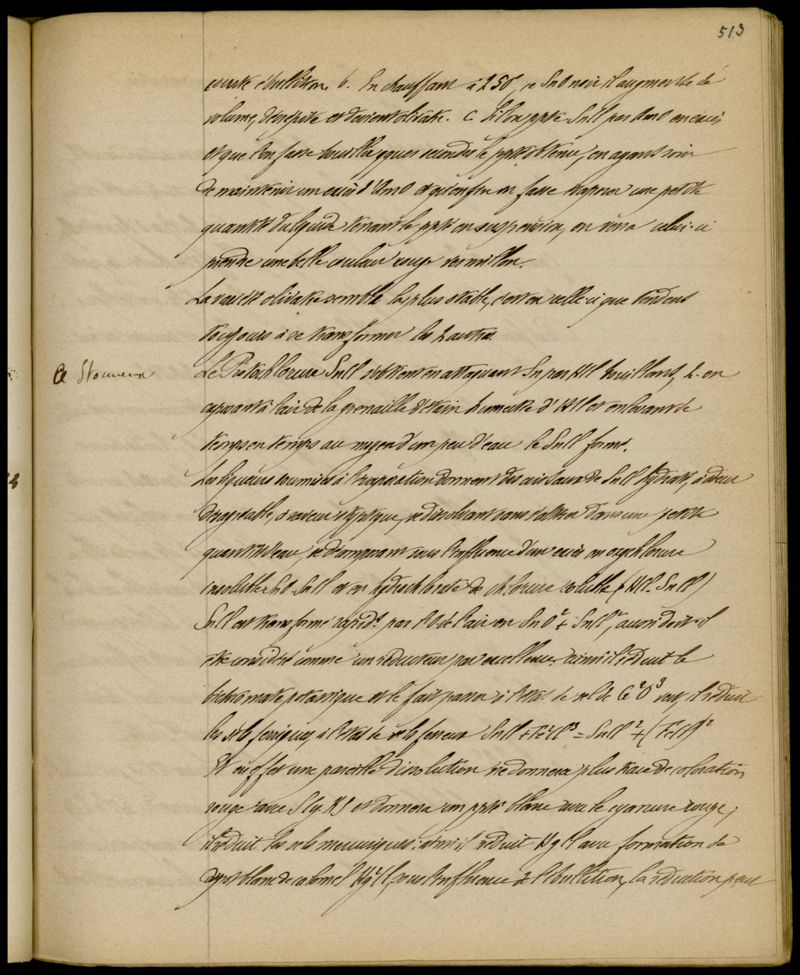 513
courte ébullition. b. En chauffant à 250°, ce SnO noir il augmente de
volume, et devient olivâtre. c. Si l'on ppte SnCl par AmO en excès
et que l'on fasse bouillir le ppté obtenu, en ayant soin
de maintenir un excès d'AmO et qu'enfin on fasse évaporer une petite
quantité du liquide tenant le ppté en suspension, on verra celui-ci
prendre une belle couleur rouge vermillon.
La variété olivâtre semble la plus stable, c'est en celle-ci que tendent
toujours à se transformer les 2 autres.
Cl Stanneux
Le Protochlorure SnCl s'obtient en attaquant Sn par HCl bouillant, 2. en
exposant à l'air de la grenaille d'étain humectée d'HCl et enlevant de
temps en temps au moyen d'un peu d'eau le SnCl formé.
Les liqueurs soumises à l'évaporation donnent des cristaux de SnCl hydraté, à odeur
désagréable, à saveur styptique, se dissolvant sans s'altérer dans une petite
quantité d'eau, se décomposant sous l'influence d'un excès en oxychlorure
insoluble SnO SnCl et en hydrochlorate de chlorure soluble (HCl. SnCl)
SnCl est transformé rapidt par l'O de l'air en SnO² + SnCl², aussi doit-il
être considéré comme un réducteur par excellence. ainsi il réduit le
bichromate potassique et le fait passer à l'état de sel de Cr²O³ vert, il réduit
les sels ferriques à l'état de sels ferreux SnCl + Fe²Cl³ = SnCl² + (FeCl)²
Et en effet une pareille dissolution ne donnera plus trace de coloration
rouge avec et donnera un ppté blanc avec le cyanure rouge;
il réduit les sels mercuriques: ainsi il réduit HgCl avec formation de
ppté blanc de calomel Hg²Cl, sous l'influence de l'ébullition, la réduction peut